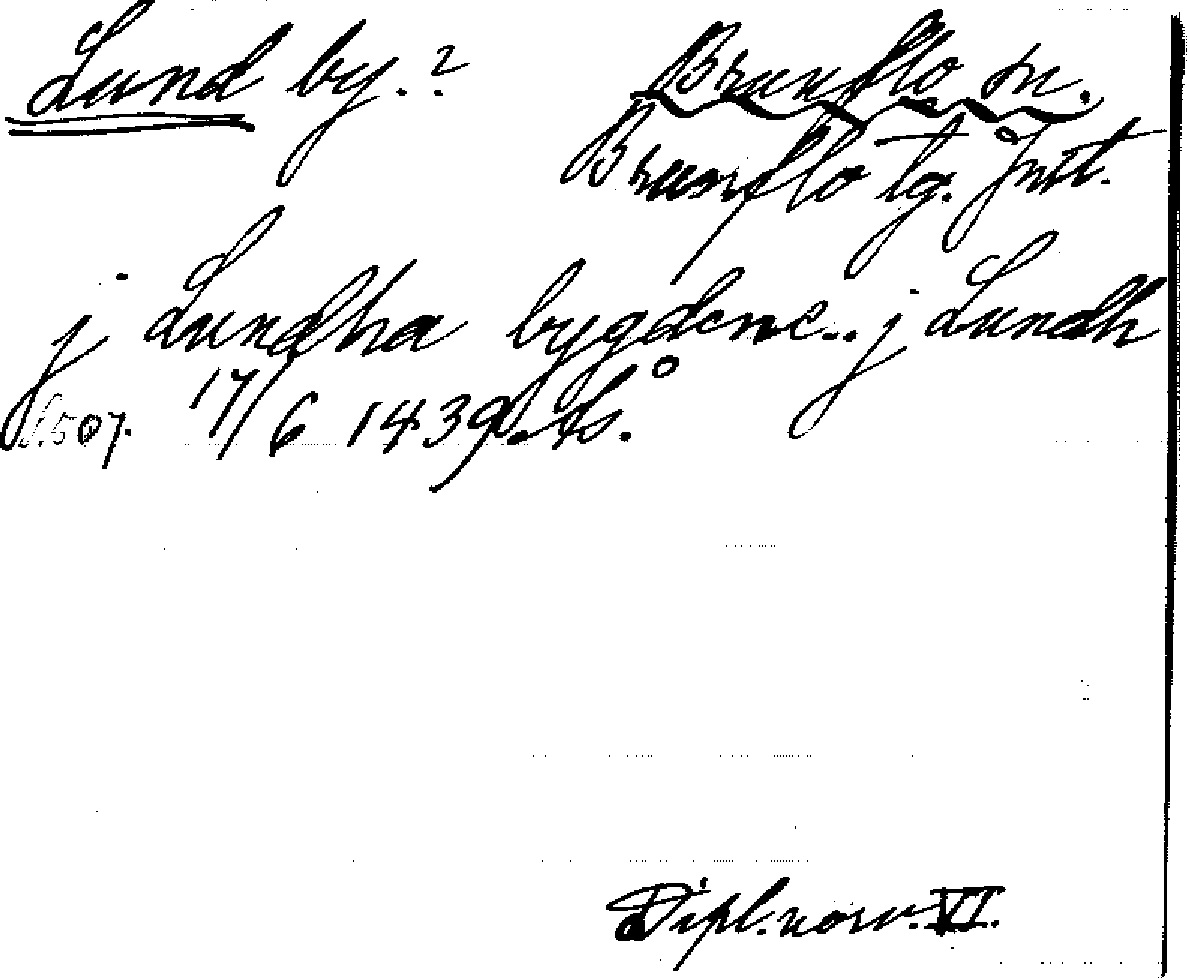 Lund by.? Brunflo sn.
Brunflo tg. Jmt.
j Lundha bygdene.. j Lundh
s.507. 17/6 1439. Ås.
Dipl. norv. VI.